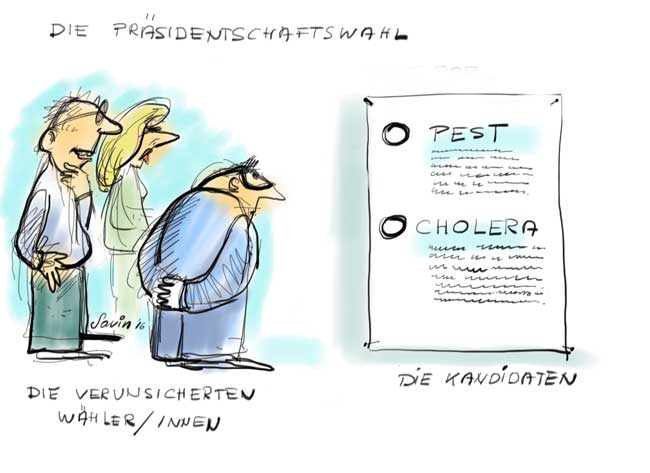 DIE PRÄSIDENTSCHAFTSWAHL
PEST
CHOLERA
Savin '16
DIE VERUNSICHERTEN
WÄHLER/INNEN
DIE KANDIDATEN